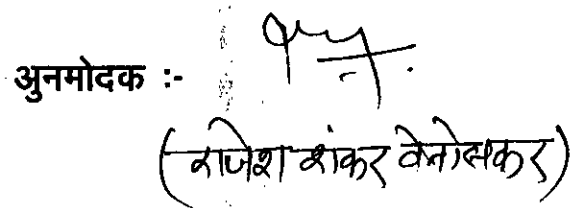 अुनमोदक :-
(राजेश शंकर वेनोसकर)